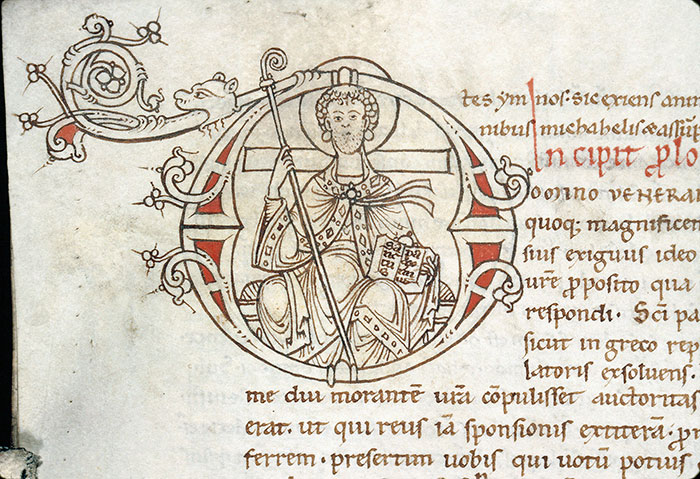 tes ymnos. sic exiens anim
nibus michahelis & assūp
Incipit plo
OMINO VENERAN
quoq; magnificen
sius exiguus ideo
urē pposito qua
respondi. Sc̄i pa
sicut in greco rep
latoris exsoluens.
me diu morantē urā cōpulisset auctoritas
erat. ut qui reus iā sponsionis extiterā. pr
ferrem. presertim uobis qui uotū potius